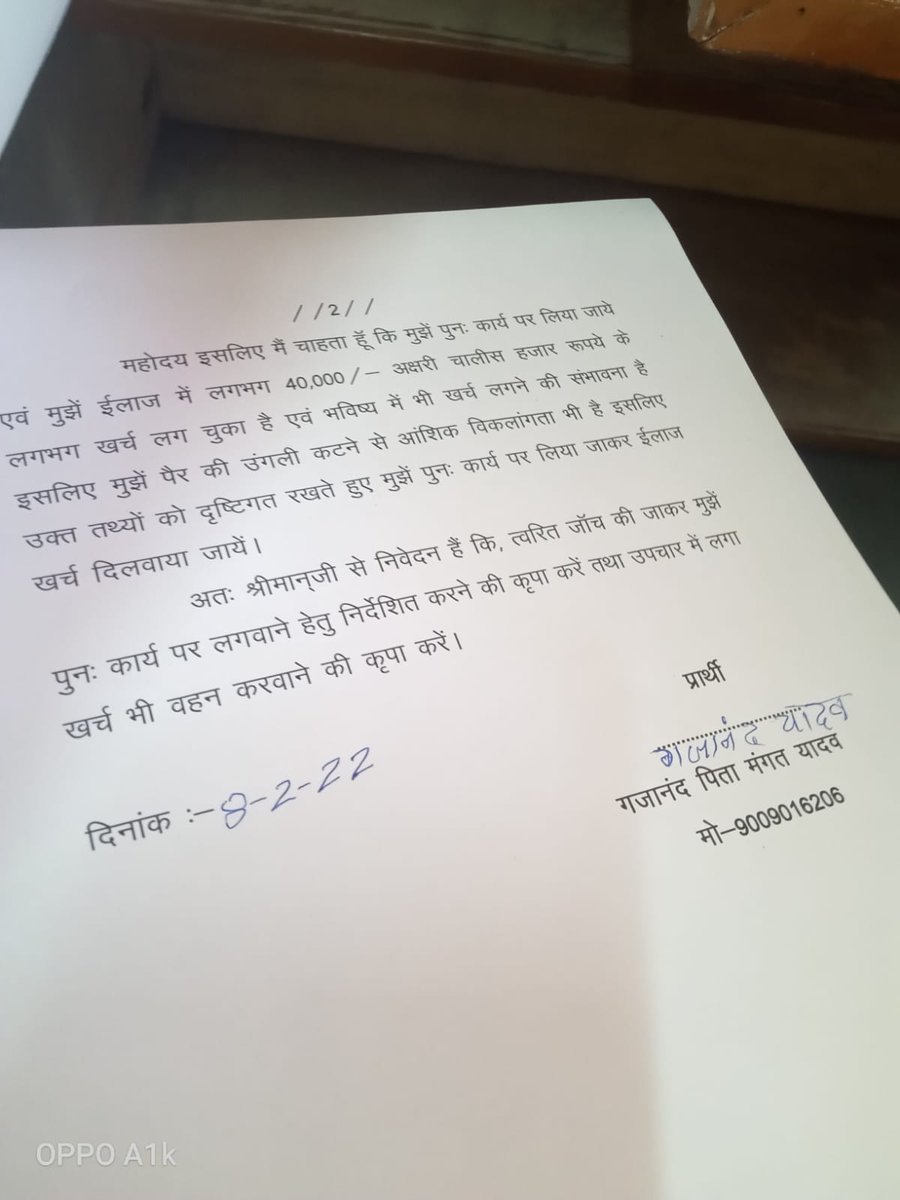 //2//
महोदय इसलिए मैं चाहता हूँ कि मुझें पुनः कार्य पर लिया जाये
एवं मुझें ईलाज में लगभग 40,000/- अक्षरी चालीस हजार रूपये के
लगभग खर्च लग चुका है एवं भविष्य में भी खर्च लगने की संभावना है
इसलिए मुझें पैर की उंगली कटने से आंशिक विकलांगता भी है इसलिए
उक्त तथ्यों को दृष्टिगत रखते हुए मुझें पुनः कार्य पर लिया जाकर ईलाज
खर्च दिलवाया जायें।
अतः श्रीमान्जी से निवेदन हैं कि, त्वरित जॉच की जाकर मुझें
पुनः कार्य पर लगवाने हेतु निर्देशित करने की कृपा करें तथा उपचार में लगा
खर्च भी वहन करवाने की कृपा करें।
प्रार्थी
गजानंद यादव
गजानंद पिता मंगत यादव
मो-9009016206
दिनांक :- 8-2-22
OPPO A1k